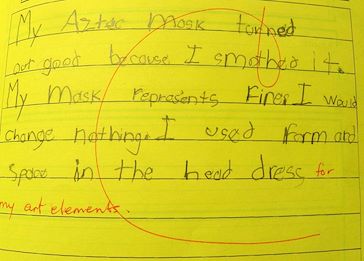 My Aztec mask turned
out good because I smothed it.
My mask represents Fire. I would
change nothing. I used form and
space in the head dress for
my art elements.